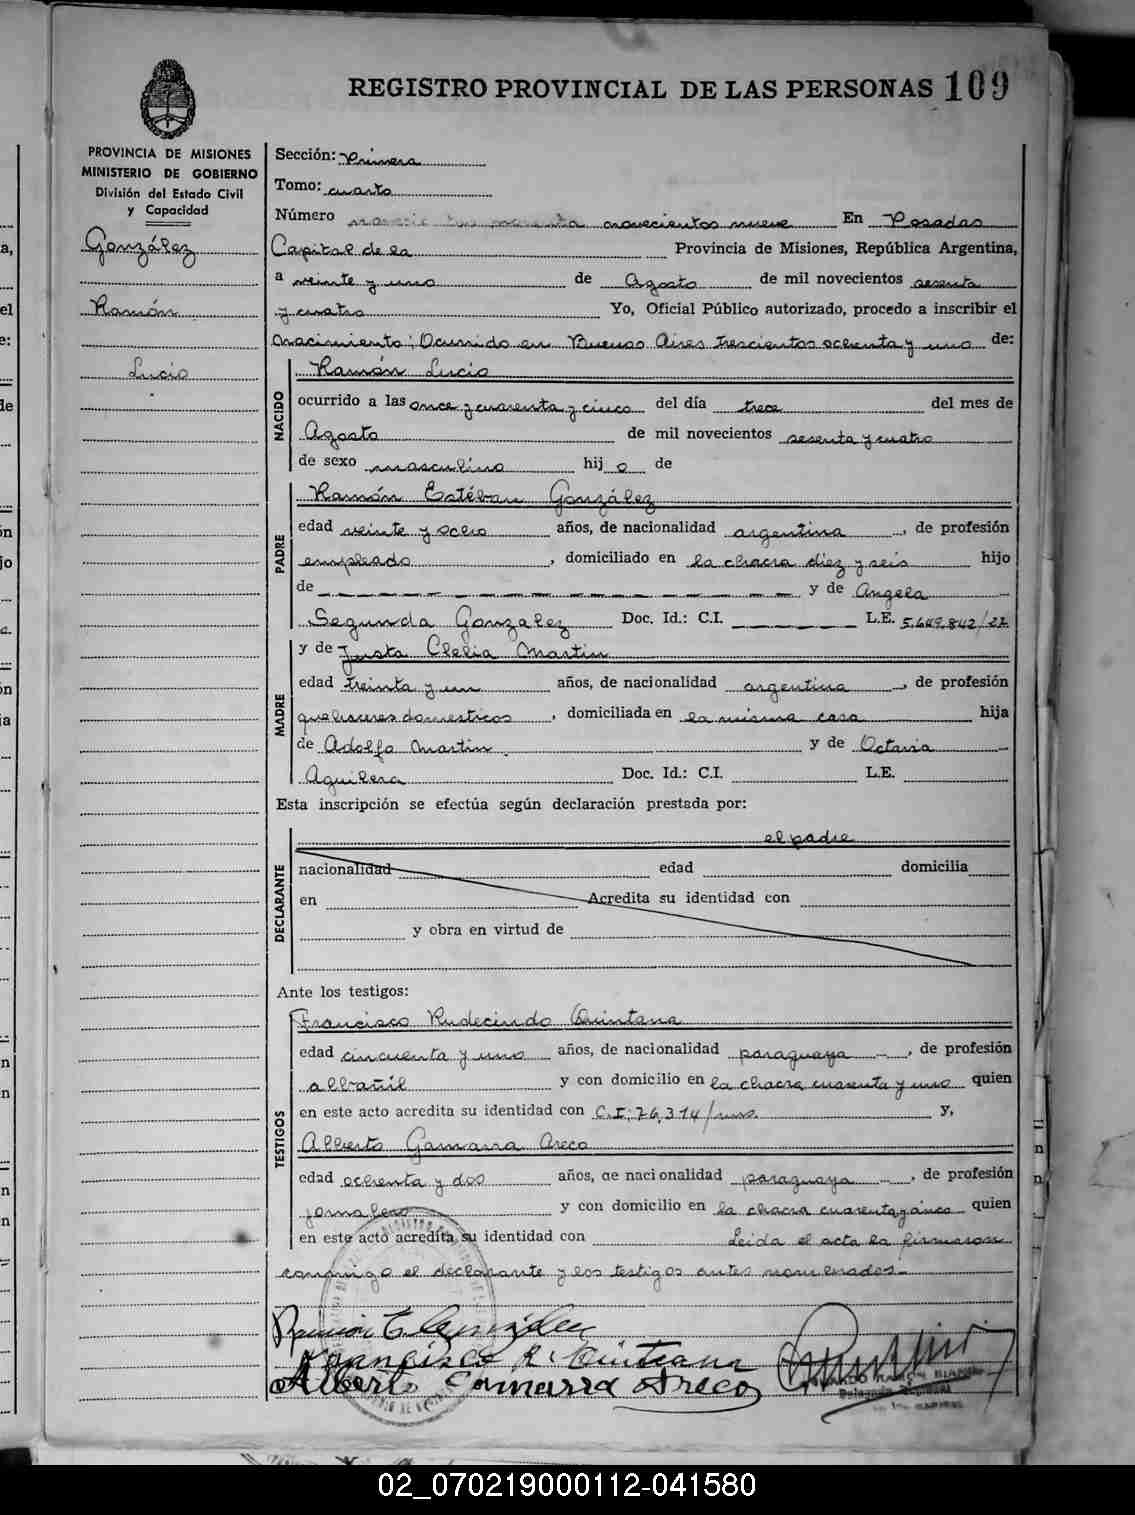 REGISTRO PROVINCIAL DE LAS PERSONAS 109
PROVINCIA DE MISIONES
MINISTERIO DE GOBIERNO
División del Estado Civil
y Capacidad
González
Ramón
Lucio
Sección: Primera
Tomo: cuarto
Número novecientos nueve En Posadas
Capital de la Provincia de Misiones, República Argentina,
a veinte y uno de Agosto de mil novecientos sesenta
y cuatro Yo, Oficial Público autorizado, procedo a inscribir el
nacimiento; Ocurrido en Buenos Aires trescientos ochenta y uno de:
NACIDO
Ramón Lucio
ocurrido a las once y cuarenta y cinco del día trece del mes de
Agosto de mil novecientos sesenta y cuatro
de sexo masculino hij o de
PADRE
Ramón Estéban González
edad veinte y ocho años, de nacionalidad argentina, de profesión
empleado, domiciliado en la chacra diez y seis hijo
de y de Angela
Segunda Gonzalez Doc. Id.: C.I. L.E. 5.649.842/22
MADRE
y de Justa Clelia Martin
edad treinta y un años, de nacionalidad argentina, de profesión
quehaceres domesticos, domiciliada en la misma casa hija
de Adolfo Martin y de Octavia
Aguilera Doc. Id.: C.I. L.E.
Esta inscripción se efectúa según declaración prestada por:
DECLARANTE
el padre
nacionalidad edad domicilia
en Acredita su identidad con
y obra en virtud de
Ante los testigos:
TESTIGOS
Francisco Rudecindo Quintana
edad cincuenta y uno años, de nacionalidad paraguaya, de profesión
albañil y con domicilio en la chacra cuarenta y uno quien
en este acto acredita su identidad con C.I; 76,314/uno. y,
Alberto Gamarra Areco
edad ochenta y dos años, de nacionalidad paraguaya, de profesión
jornalero y con domicilio en la chacra cuarenta y cinco quien
en este acto acredita su identidad con Leida el acta la firmaron
conmigo el declarante y los testigos antes nombrados.
Ramón E González
Francisco R. Quintana
Alberto Gamarra Areco
02_070219000112-041580